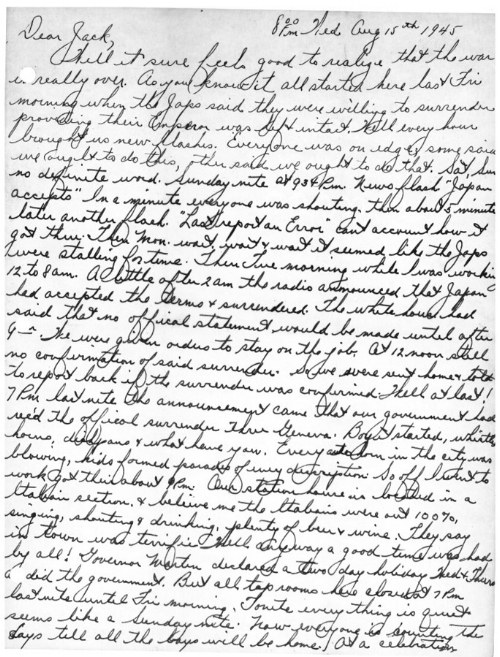 8:00 Pm Wed Aug 15th 1945
Dear Jack,
Well it sure feels good to realize that the war
is really over. As you know it all started here last Fri
morning when the Japs said they were willing to surrender
providing their Emperor was left intact. Well every hour
brought us new flashes. Everyone was on edge, some said
we ought to do this, others said we ought to do that. Sat, Sun
no definite word. Sunday nite at 934 Pm. News flash "Japan
accepts" In a minute everyone was shouting, then about 5 minutes
later another flash. "Last report an Error" can't account how it
got thru. Then Mon. wait, wait & wait it seemed like the Japs
were stalling for time. Then Tue morning while I was working
12 to 8am. A little after 2 am the radio announced that Japan
had accepted the terms & surrendered. The white house had
said that no offical statement would be made until after
9 We were given orders to stay on the job. At 12 noon still
no confirmation of said surrender. So we were sent home & told
to report back if the surrender was confirmed. Well at last!
7 Pm last nite the announcement came that our government had
rec'd the offical surrender thru Geneva. Boy it started, whistles
horns, & what have you. Every horn in the city was
blowing, kids formed parades of every description. So off I went to
work. Got there about 9 pm. Our station house is located in a
Italian section. & believe me the Italians were out 100%,
singing, shouting & drinking, plenty of beer & wine. They say
in town was terrific. Well anyway a good time was had
by all! Governor Martin declared a two day holiday Wed & Thurs
did the government. But all taprooms here closed at 7 Pm
last nite until Fri morning. Tonite everything is quiet
seems like a Sunday nite. Now everyone is counting the
days till all the boys will be home. At a celebration